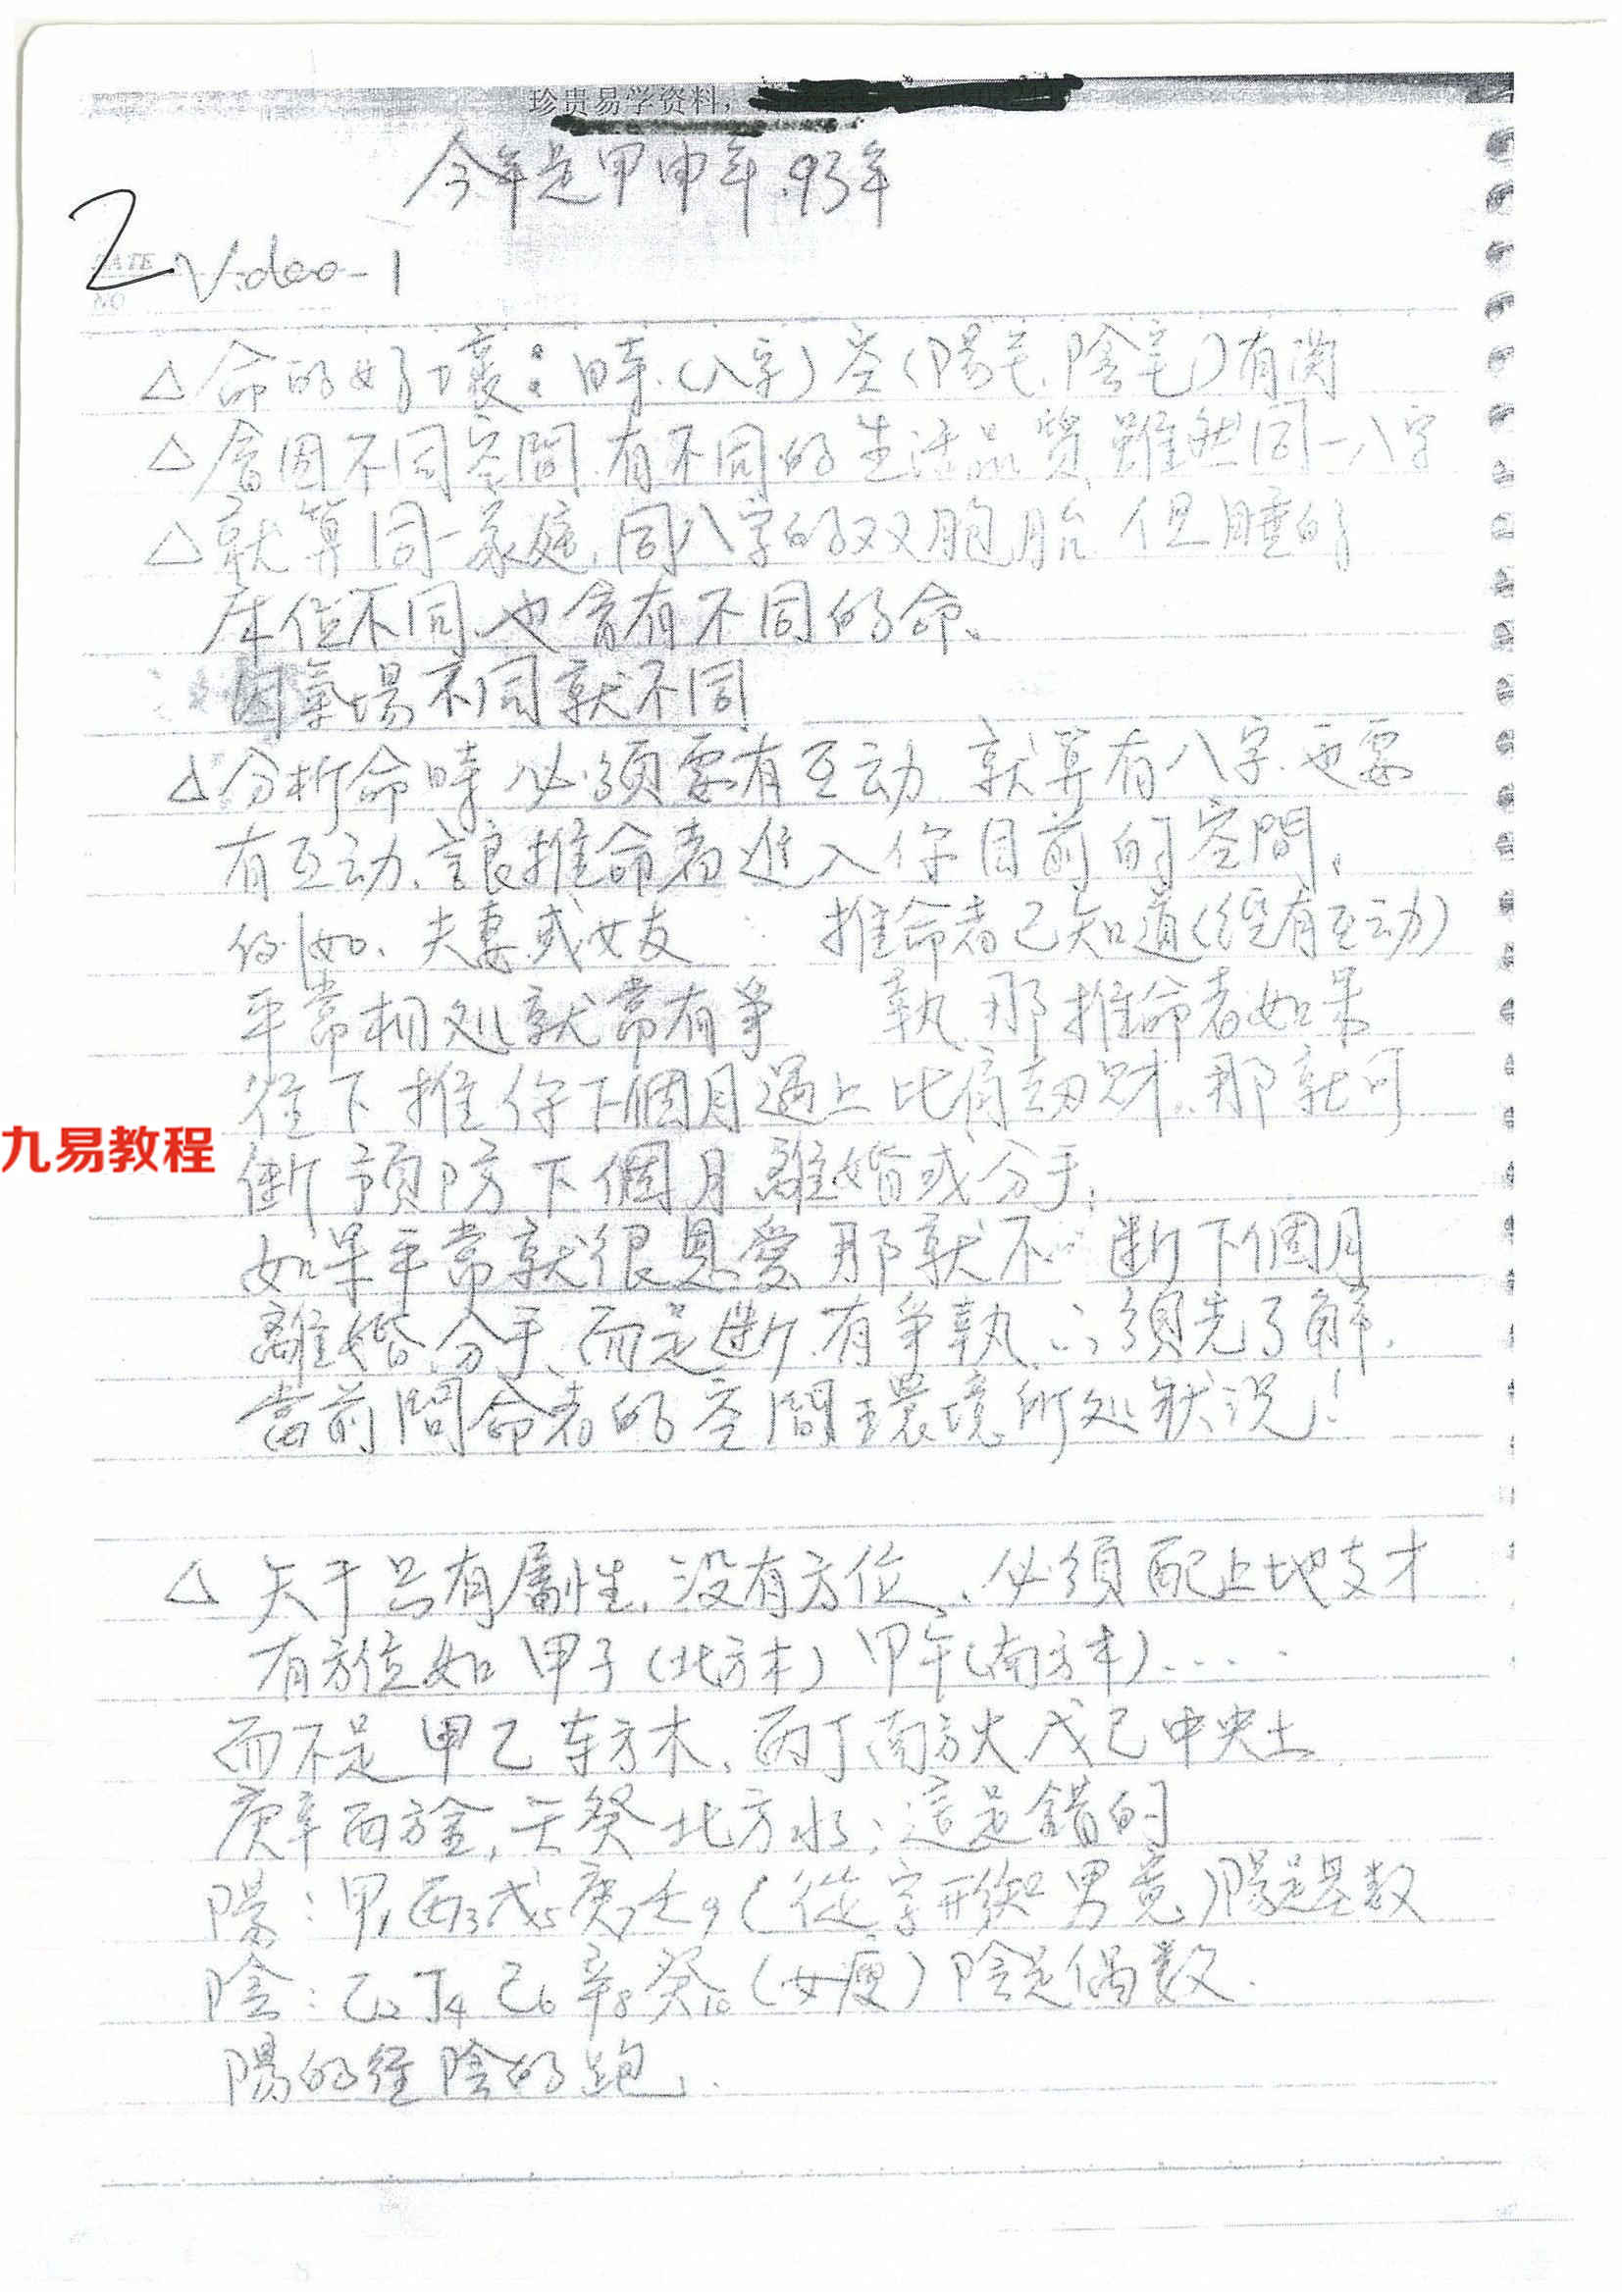 珍贵易学资料，
今年是甲申年.93年
2
DATE
NO
Video-1
△命的好壞：時.(八字)空(陽宅.陰宅)有関
△會因不同空間.有不同的生活品質雖然同一八字
△就算同一家庭,同八字的双胞胎.但睡的
床位不同.也會有不同的命.
因氣場不同就不同
△分析命時必須要有互动.就算有八字.也要
有互动.讓推命者進入你目前的空間.
例如.夫妻或女友 推命者已知道(經有互动)
平常相处就常有爭 執.那推命者如果
往下推.你下個月遇上比肩劫財..那就可
断預防下個月離婚或分手.
九易教程
如果平常就很恩愛.那就不 断下個月
離婚.分手.而是断.有爭執.∴須先了解.
當前問命者的空間環境所处狀況!
△天干只有屬性.沒有方位.必須配上地支才
有方位如甲子(北方木)甲午(南方木)....
而不是甲乙东方木.丙丁南方火戊己中央土
庚辛西方金,壬癸北方水;這是錯的
陽：甲1丙3戊5庚7壬9(從字形知男寬)陽是基数
陰：乙2丁4己6辛8癸10(女瘦)陰是偶数.
陽的往陰的跑.